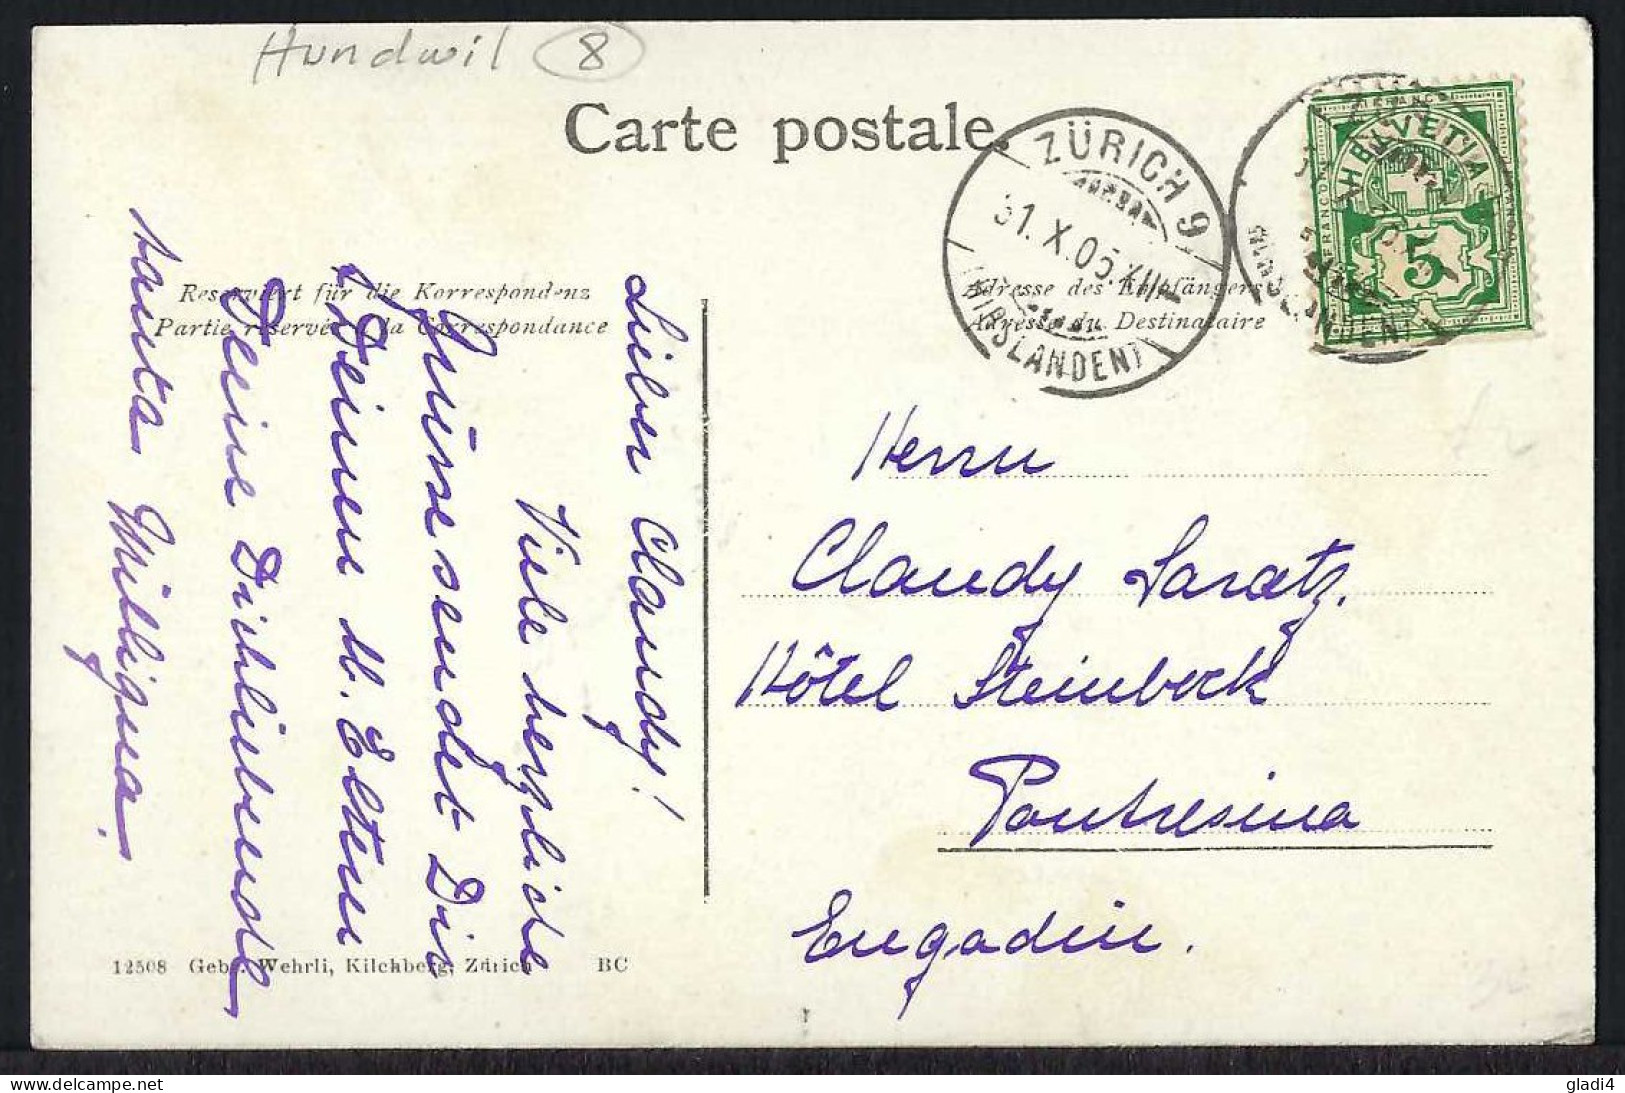 Hundwil 8
Carte postale.
ZÜRICH 9
31.X.05.XIII
(HIRSLANDEN)
HELVETIA
FRANCO
5
Reserviert für die Korrespondenz
Partie réservée à la Correspondance
Adresse des Empfängers
Adresse du Destinataire
Lieber Claudy!
Viele herzliche
Grüsse sendet Dir
u. Deinen lb. Eltern
Deine Dichliebende
tanta Milligna.
Herrn
Claudy Saratz.
Hôtel Steinbock
Pontresina
Engadin.
12508 Gebr. Wehrli, Kilchberg, Zürich BC
gladi4